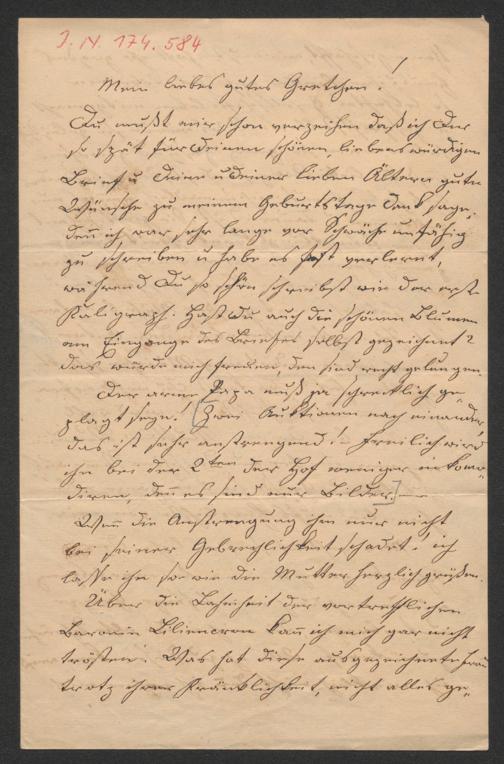 J. N. 174.584
Mein liebes gutes Gretchen!
Du mußt mir schon verzeihen daß ich Dir
so spät für Deinen schönen, liebenswürdigen
Brief u Deine u Deiner lieben Ältern gute
Wünsche zu meinem Geburtstage Dank sage,
denn ich war sehr lange vor Schwäche unfähig
zu schreiben u habe es fast verlernt,
während Du so schön schreibst wie der erste
Kaligraph. Hast Du auch die schönen Blumen
am Eingange des Briefes selbst gezeichnet?
Das würde mich freuen, den sind recht gelungen.
Der arme Papa muß ja schrecklich ge¬
plagt seyn! [Zwei Auktionen nach einander,
das ist sehr anstrengend! – Freilich wird
ihn bei der 2ten der Hof weniger inkomo¬
diren, denn es sind nur Bilder.] —
Wenn die Anstrengung ihm nur nicht
bei seiner Gebrechlichkeit schadet! ich
lasse ihn so wie die Mutter herzlich grüßen.
Über die der vortrefflichen
Baronin Liliencron kann ich mich gar nicht
trösten! Was hat diese ausgezeichnete Frau
trotz ihrer Kränklichkeit, nicht alles ge¬